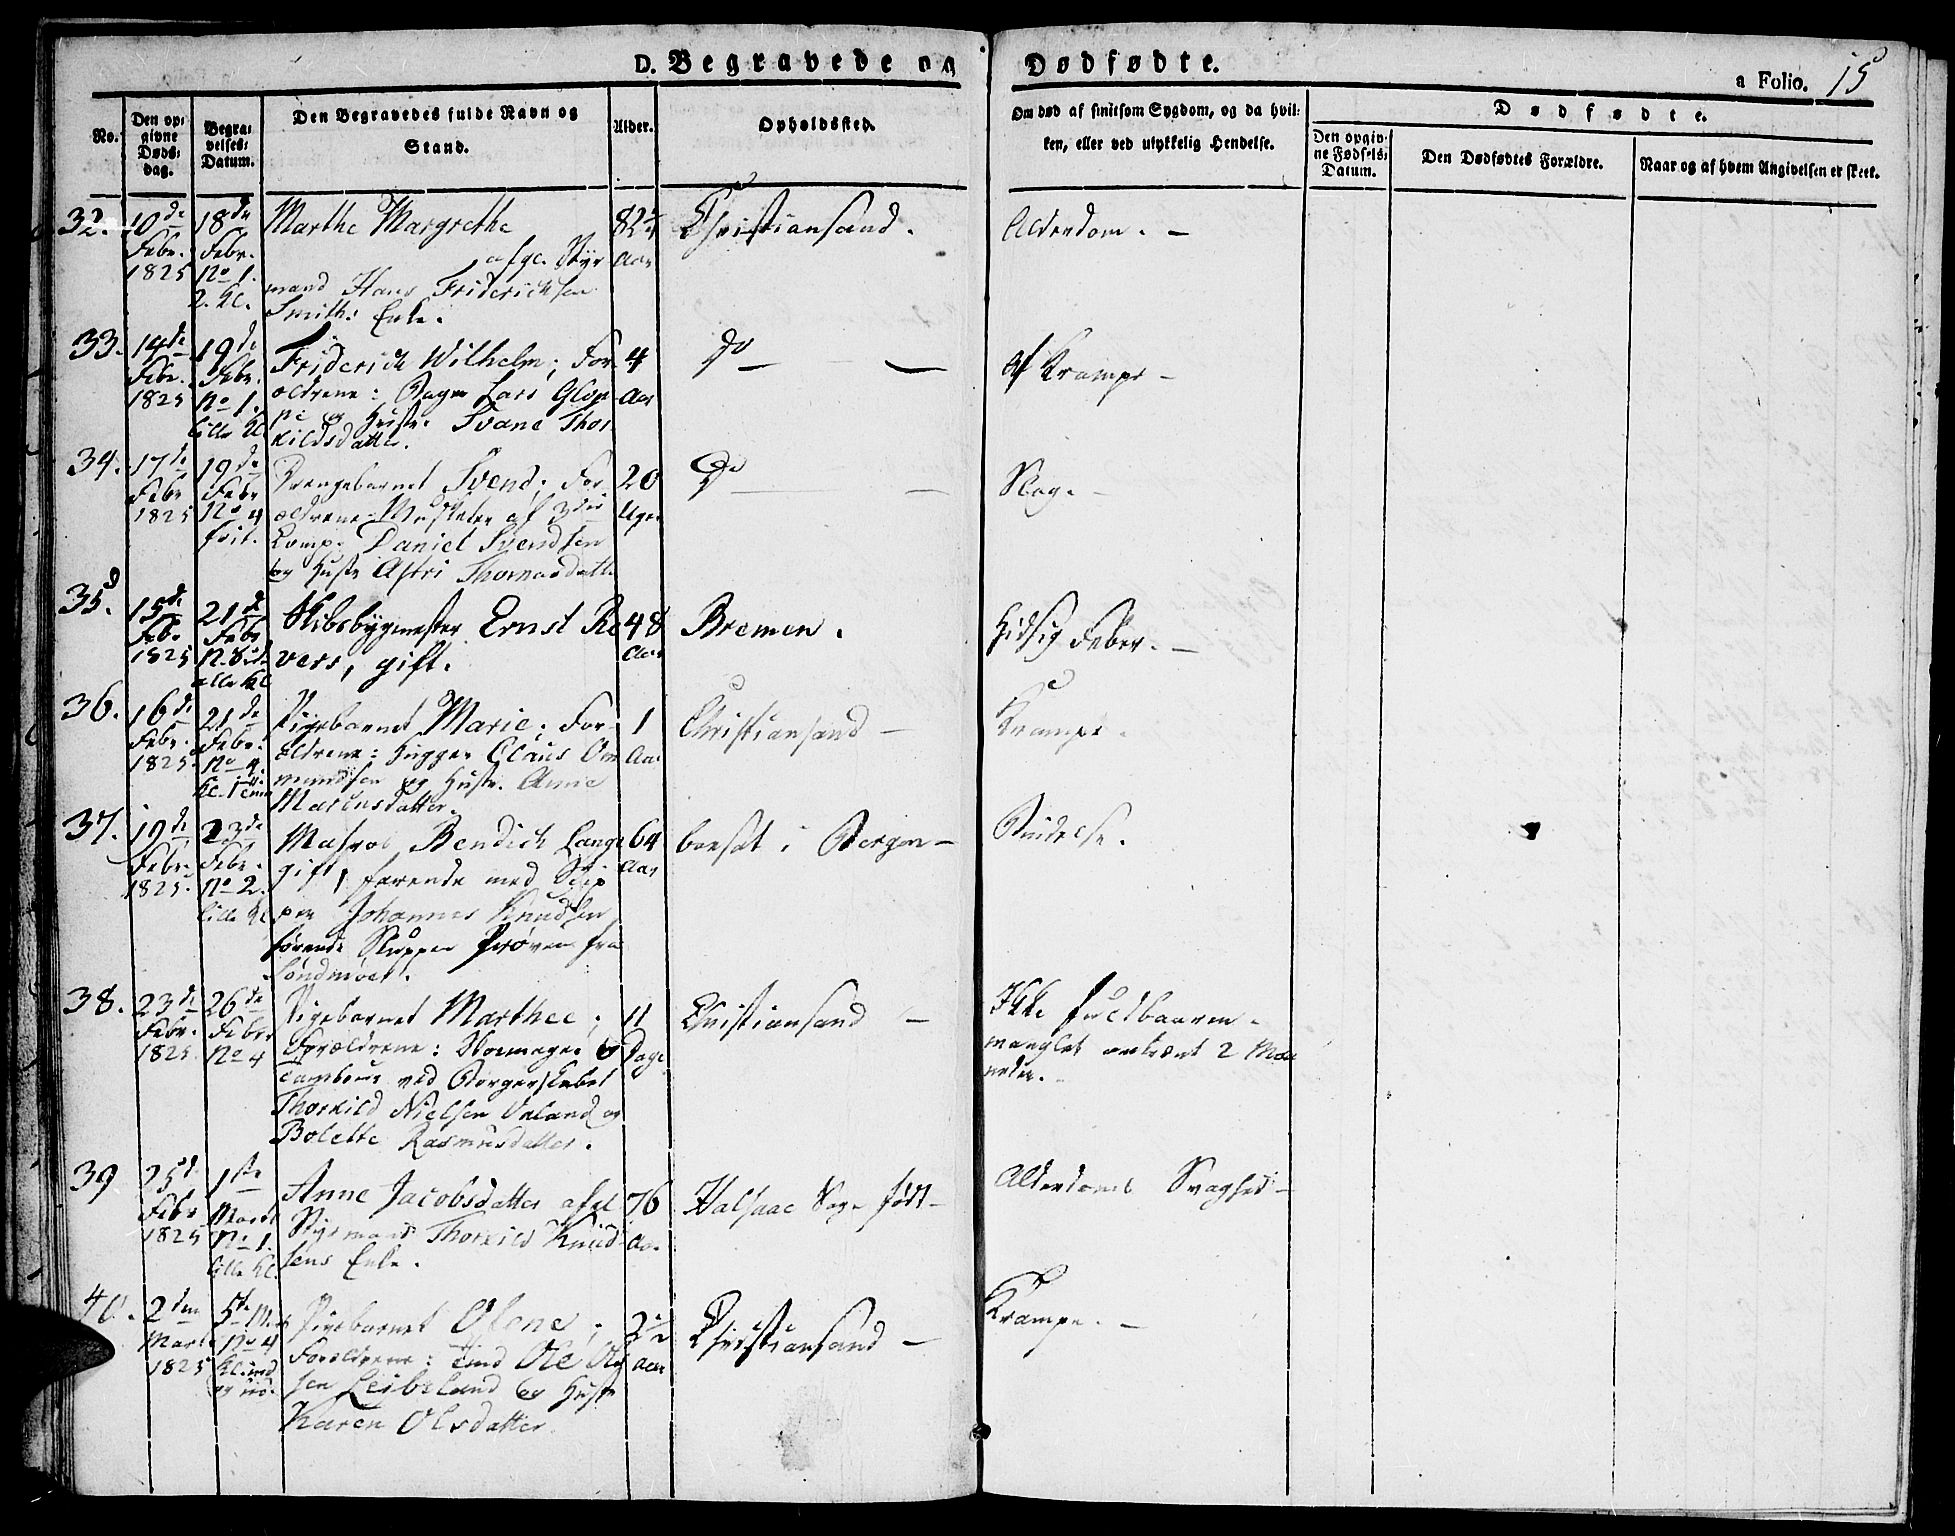 D. Begravede og Dødfødte.
a Folio. 15
No.
Den opgivne Dødsdag.
Begravelses Datum.
Den Begravedes fulde Navn og Stand.
Alder.
Opholdssted.
Om død af smitsom Sygdom, og da hvilken, eller ved ulykkelig Hendelse.
Dødfødte.
Den opgivne Fødsels Datum.
Den Dødfødtes Forældre.
Naar og af hvem Angivelsen er skeet.
32. 10de 18de Marthe Margrethe 82 Christiansand. Alderdom. -
Febr. Febr. afge. Styr Aar
1825 No 1. mand Hans Friderichsen
2. Kl. Smiths Enke.
33. 14de 19de Friderich Wilhelm; For 4 Do - af Krampe -
Febr. Febr. ældrene: Lars Glop Aar
1825 No 1. pe og Hustr. Svane Thor
lille Kl kildsdatter.
34. 17de 19de Drengebarnet Svend; For 20 Do - Slag. -
Febr Febr ældrene: Musketer af 3die Uger
1825 No 4 Comp. Daniel Svendsen
frit. og Hustr Astri Thomasdatte
35. 15de 21de Skibsbygmester Ernst Re 48 Bremen. Hidsig Feber. -
Febr Febr vers, gift. Aar
1825
alle Kl
36. 16de 21de Pigebarnet Marie; For- 1 Christiansand - Krampe.
Febr. Febr. ældrene: Hugger Claus Om Aar
1825. No 4. mundsen og Hustr. Anne
Kl. 1 time
37. 19de 23de Matros Bendich Lange 64 boesat i Bergen -
Febr. Febr. gift, farende med Skip Aar
1825. No 2. per Johannes Knudsen
lille Kl førende Sluppen Prøven fra
Søndmøer.
38. 23de 26de Pigebarnet Marthee; 11 Christiansand - Ikke fuldbaaren.
Febr. Febr Forældrene: Skoemager og Dage manglet omtrent 2 Maa
1825. No 4 Tambour ved Borgerskabet neder.
Thorkild Nielsen Valand og
Bolette Rasmusdatter.
39 25de 1ste Anne Jacobsdatter afgl 76 Halsaae Sogn født - Alderdoms Svaghed -
Febr Marts Styrmand Thorkild Knud Aar
1825 No 1. sens Enke.
lille Kl.
40. 2den 5te Pigebarnet Olene; 2 1/2 Christiansand - Krampe. -
Marts No 4 Forældrene: Ole Ols Aar
1825 Kl. ind sen Leibeland og Hustr
Karen Olsdatter